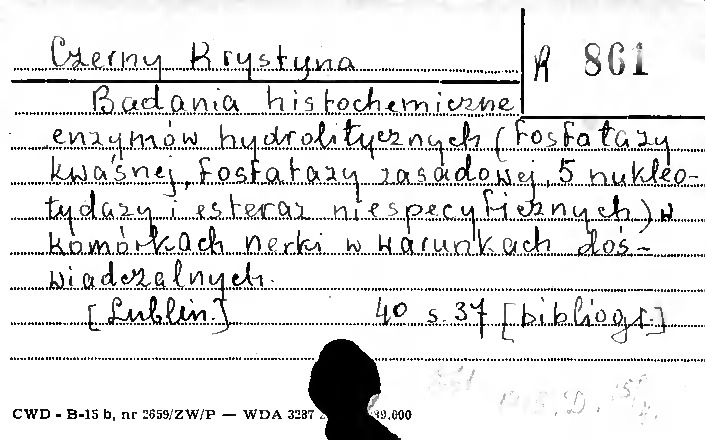 Czerny Krystyna
A 861
Badania histochemiczne
enzymów hydrolitycznych (fosfatazy
kwaśnej, fosfatazy zasadowej, 5 nukleo-
tydazy i esteraz niespecyficznych) w
komórkach nerki w warunkach doś-
wiadczalnych.
[Lublin.] 40 s. 37 [bibliogr.]
CWD - B-15 b, nr 2659/ZW/P — WDA 3287 39.000